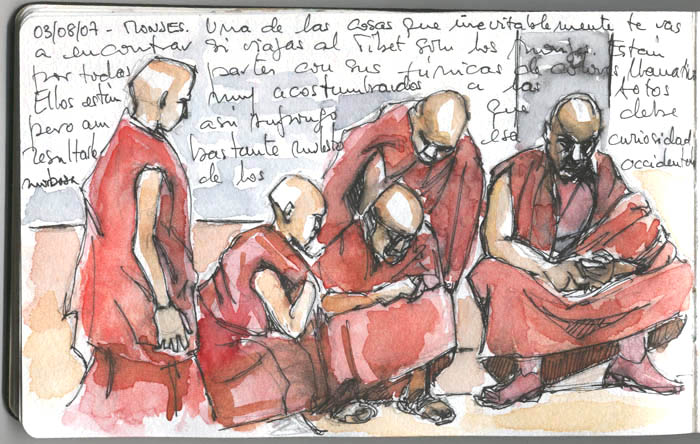 03/08/07 - MONJES. Una de las cosas que inevitablemente te vas
a encontrar si viajas al Tibet son los monjes. Están
por todas partes con sus túnicas de colores llamativos
Ellos están muy acostumbrados a las fotos
pero aun así supongo que debe
resultarles bastante molesto esa curiosidad
morbosa de los occidentales